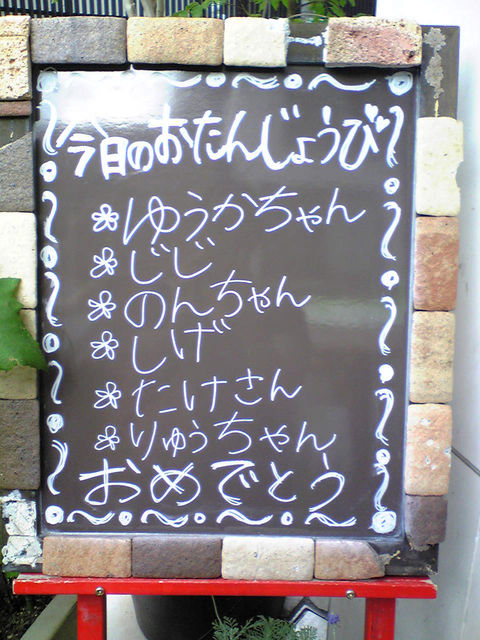 今日のおたんじょうび
ゆうかちゃん
じじ
のんちゃん
しげ
たけさん
りゅうちゃん
おめでとう